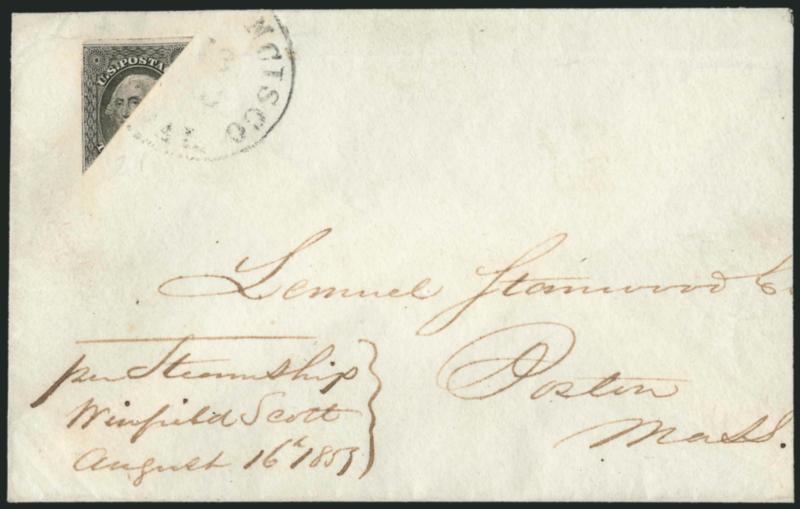 U.S. POSTA
NCISCO
CAL
Lemuel Stanwood Esq
Boston
Mass.
per Steamship
Winfield Scott
August 16th 1853